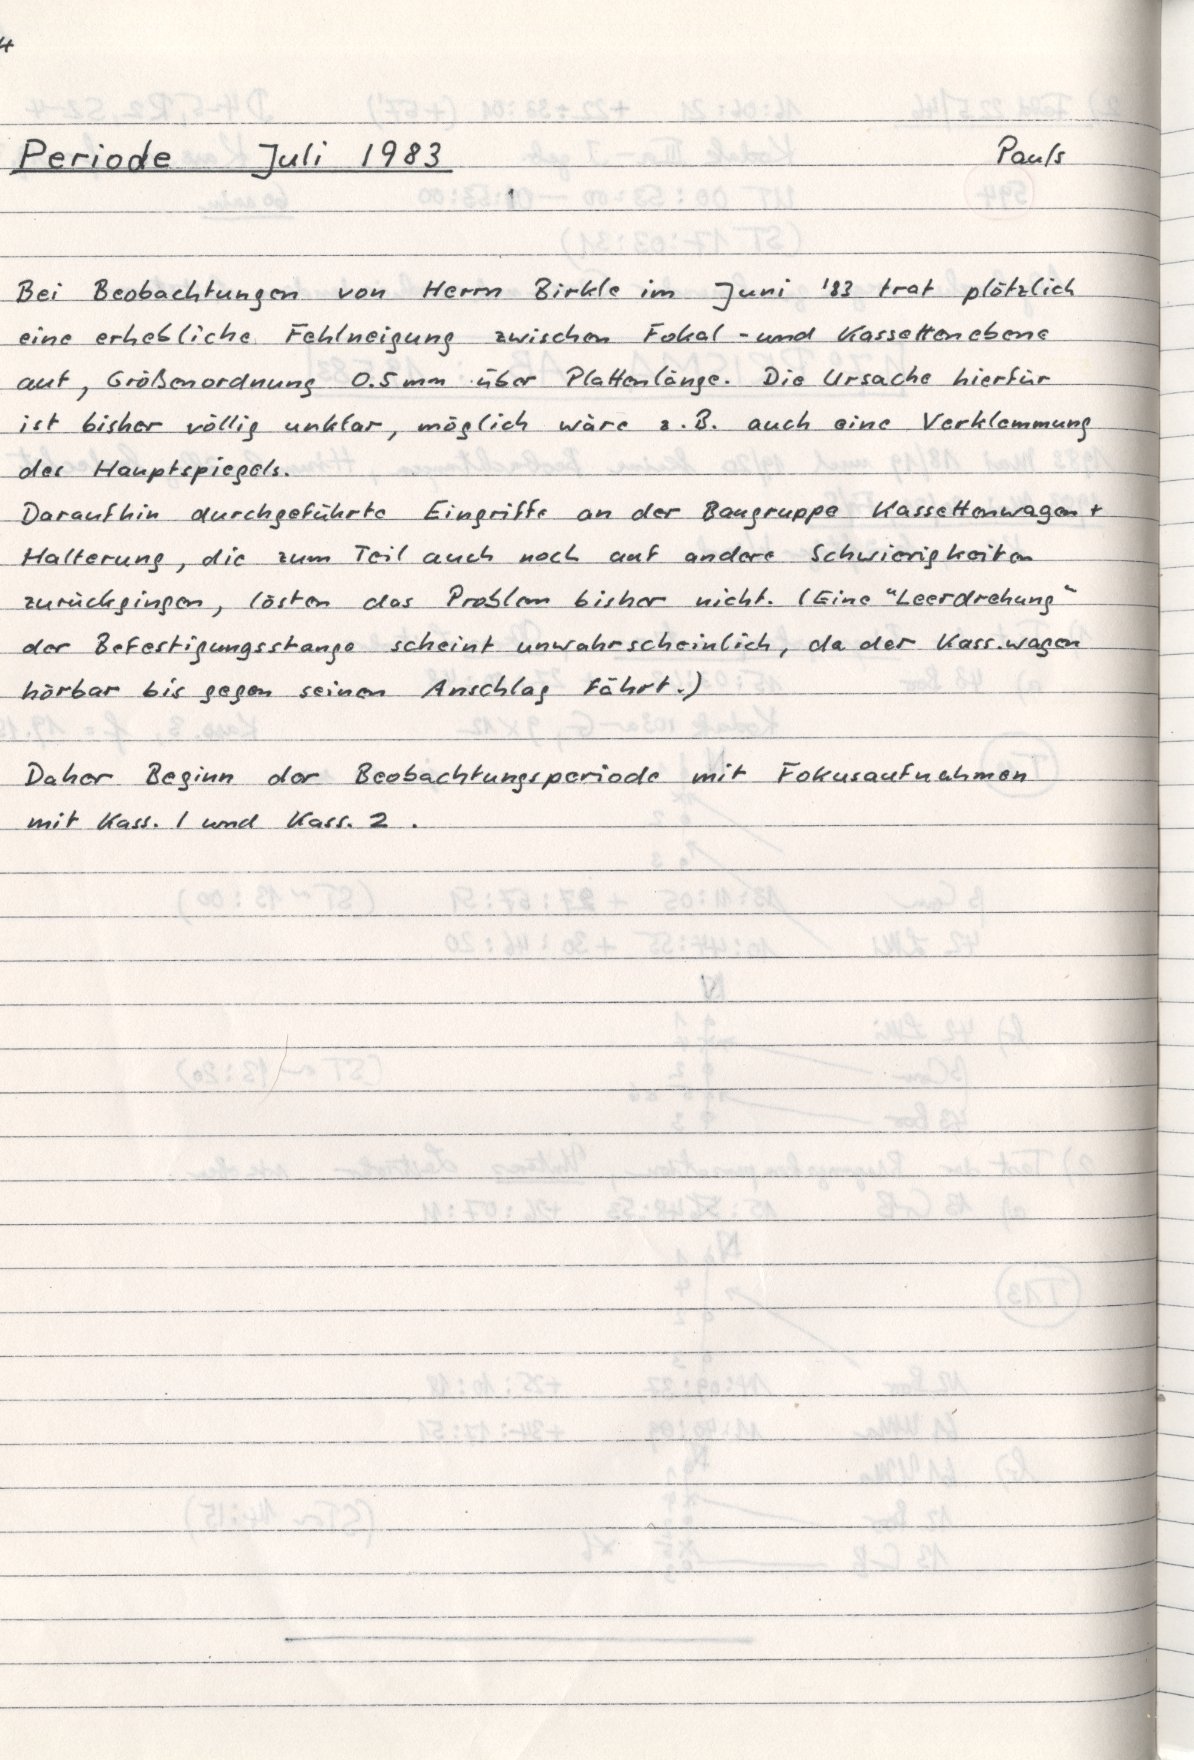 4
Periode Juli 1983 Pauls
Bei Beobachtungen von Herrn Birkle im Juni '83 trat plötzlich
eine erhebliche Fehlneigung zwischen Fokal- und Kassettenebene
auf, Größenordnung 0.5 mm über Plattenlänge. Die Ursache hierfür
ist bisher völlig unklar, möglich wäre z.B. auch eine Verklemmung
des Hauptspiegels.
Daraufhin durchgeführte Eingriffe an der Baugruppe Kassettenwagen +
Halterung, die zum Teil auch noch auf andere Schwierigkeiten
zurückgingen, lösten das Problem bisher nicht. (Eine "Leerdrehung"
der Befestigungsstange scheint unwahrscheinlich, da der Kass.wagen
hörbar bis gegen seinen Anschlag fährt.)
Daher Beginn der Beobachtungsperiode mit Fokusaufnahmen
mit Kass. 1 und Kass. 2 .